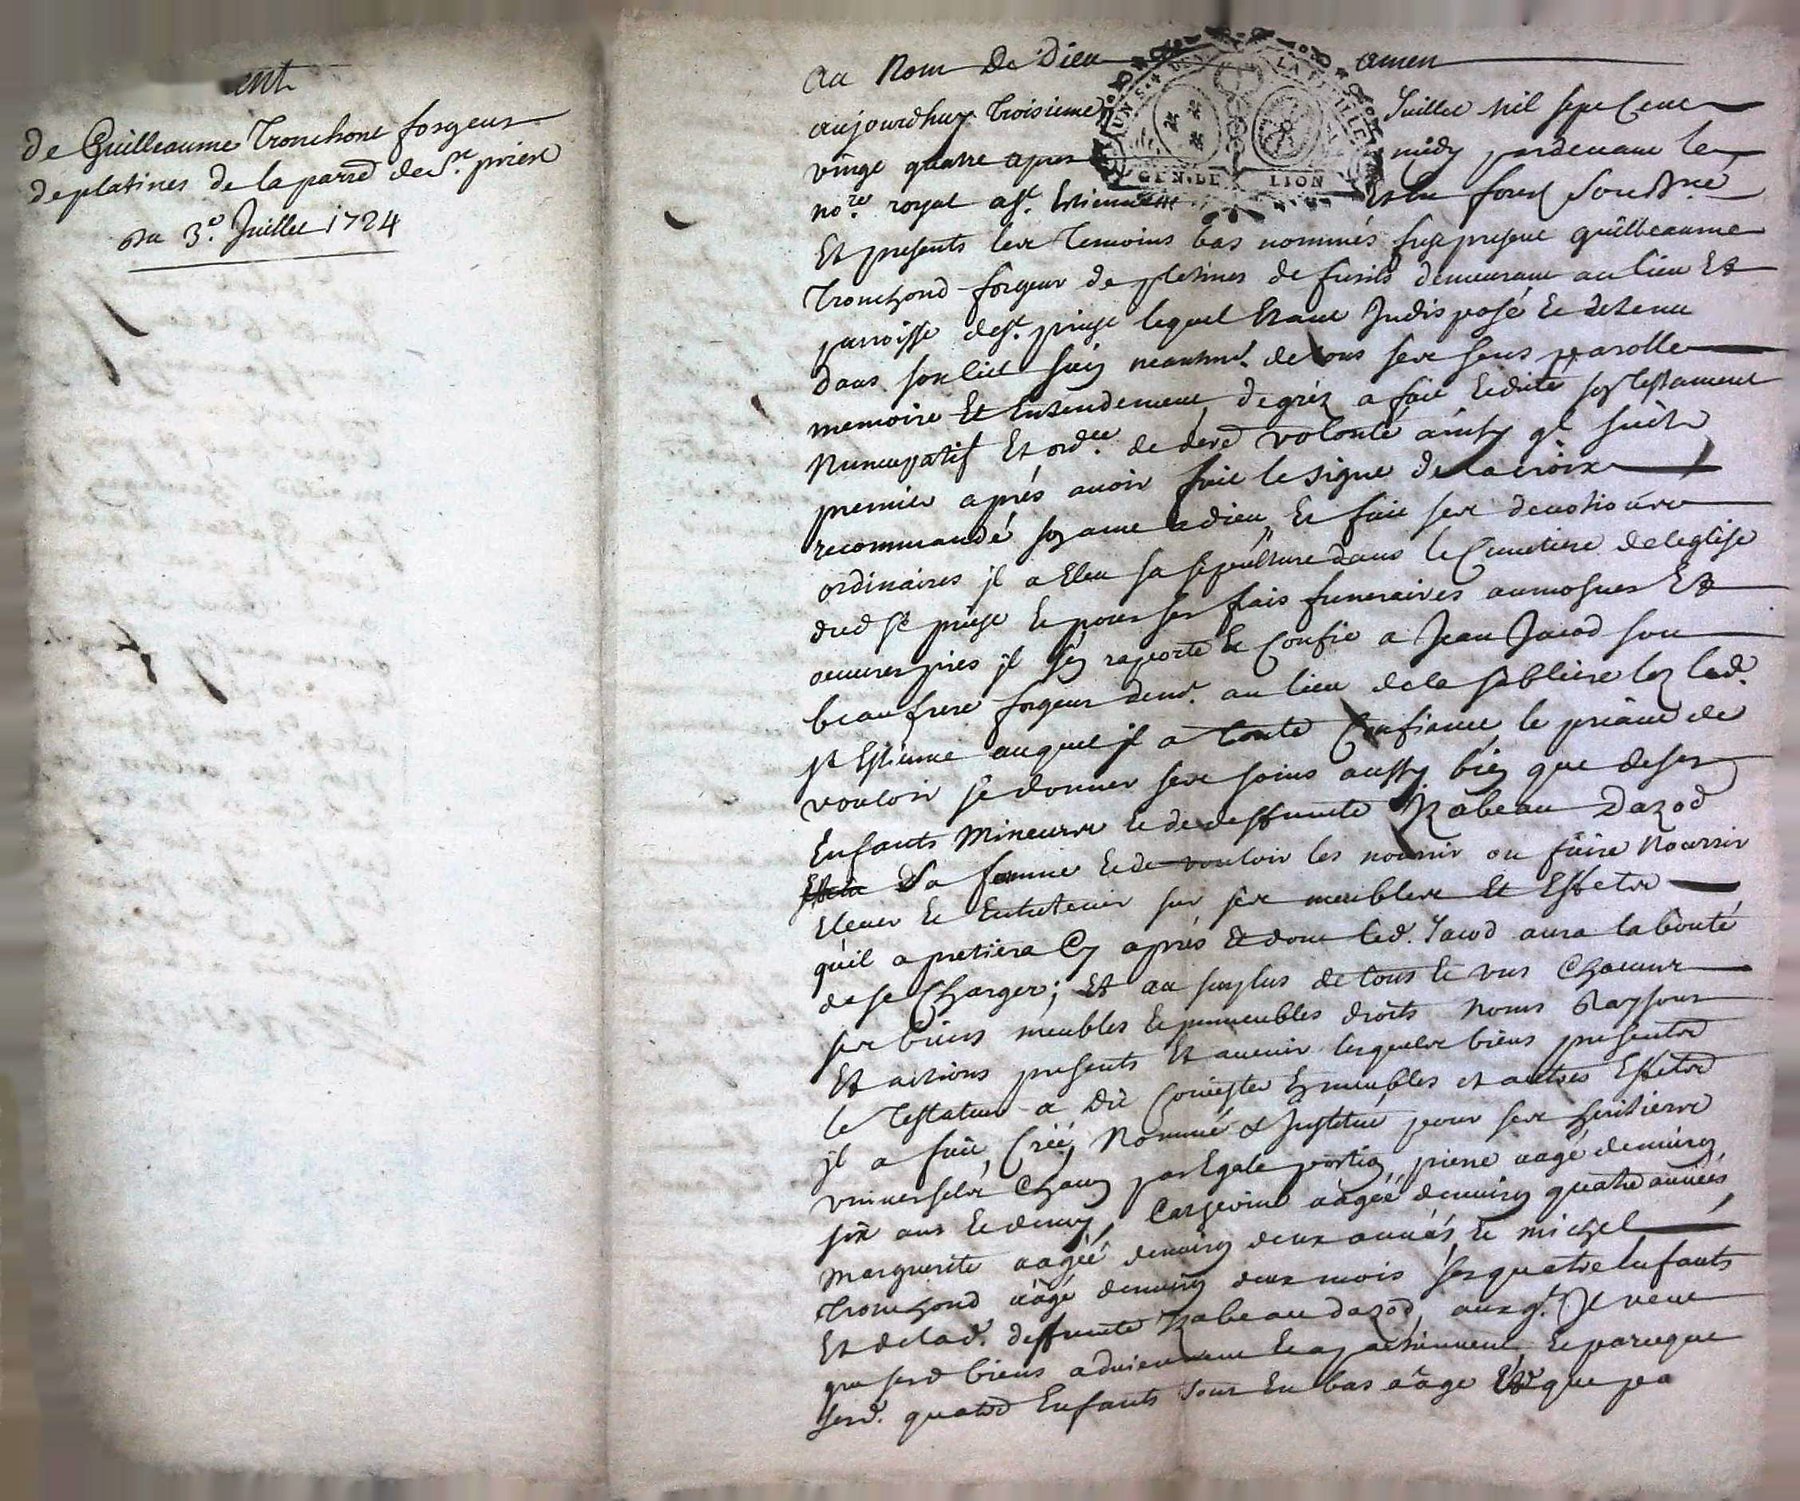 ent
de Guilleaume Tronchont forgeur
de platines de la parred de St. priex
Du 3e. Juillet 1724
Au Nom De Dieu amen
aujourdhuy Troisieme Juillet mil sept cent
vingt quatre apres midy pardevant le
nore. royal a St. Estienne en forest soubsne
Et presents les Temoins bas nommés fust present guilleaume
Tronchond forgeur de pletines de fusils demeurant au lieu Et
parroisse de St. priest lequel Etant Indisposé et detenu
dans son lict sain neantmt. de tous ses sens parolle
memoire Et Entendement, de gréz a fait et dicté son Testament
Nuncupatif Et ordce. de dere volonté ainsy ql suit
premier aprés avoir fait le signe de la croix
recommandé son ame a dieu, et fait ses devotions
ordinaires jl a Eleu sa sepulture dans le Cimetiere de leglise
dud St priest et pour ses frais funeraires aumosnes Et
oeuvres pies jl s'en raporte et Confie a Jean Jacod son
beaufrere forgeur demt. au lieu de la sabliere lez lad.
St Estienne auquel jl a toute Confiance le priant de
vouloir se donner ses soins aussy bien que de ses
Enfants Mineurs et de deffunte Izabeau Dazod
Sa femme et de vouloir les nourrir ou faire Nourrir
Elever et Entretenir sur ses meubles Et Effets
qu'il apretiera Cy aprés Et dont led. Jacod aura la bonté
de se Charger; Et au surplus de tous et uns Chacuns
ses biens meubles et immeubles droits Noms Raysons
Et actions presents Et avenir lesquels biens presents
le Testateur a Dit Consister En meubles et autres Effets
jl a fait, Créé, Nommé & Institué pour ses heritiers
universels Chacun par Egale portion, pierre aagé denviron
six ans et demy, Catherine aagée denviron quatre années,
Marguerite aagée denviron deux années, et michel
Tronchond aagé denviron deux mois ses quatre Enfants
Et de lad. deffunte Izabeau dazod, aux qt. Jl veut
que sesd biens adviennent et apartiennent Et parceque
sesd. quatre Enfants sont En bas aage Et que pea